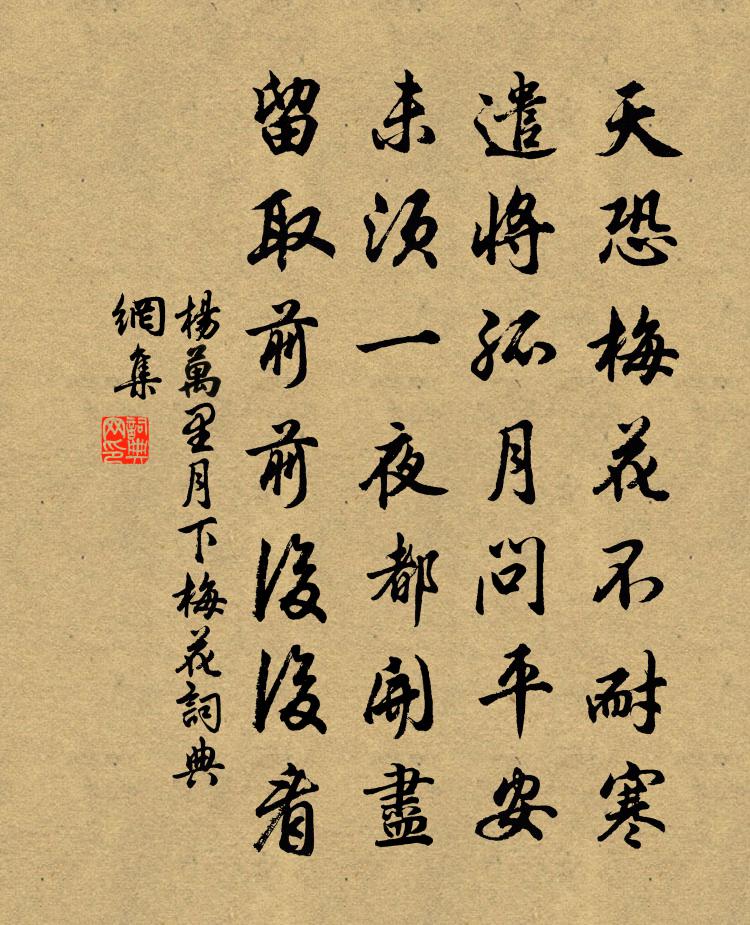 天恐梅花不耐寒
遣將孤月問平安
未須一夜都開盡
留取前前後後看
楊萬里月下梅花詞典
網集
詞典
网印